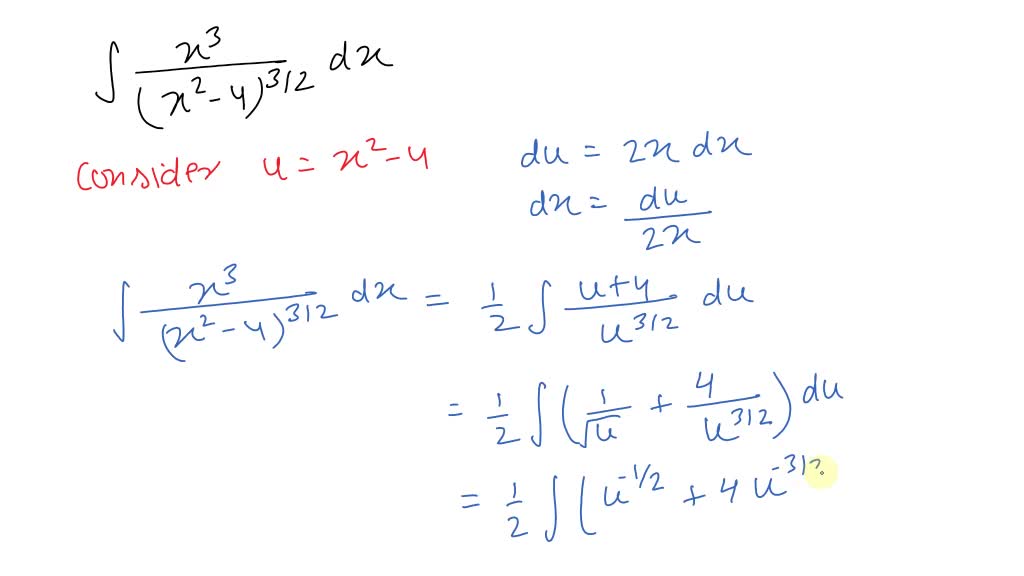 ∫ x³/(x²-4)^3/2 dx
Consider u = x²-4
du = 2x dx
dx = du/2x
∫ x³/(x²-4)^3/2 dx = 1/2 ∫ u+4/u^3/2 du
= 1/2 ∫ (1/√u + 4/u^3/2) du
= 1/2 ∫ (u^-1/2 + 4 u^-3/